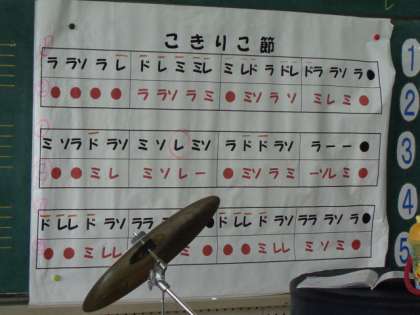 こきりこ節
ラ ラソ ラ レ ド レ ミ ミレ ミ レド ラ ドレ ドラ ラソ ラ ●
● ● ● ● ラ ラソ ラ ミ ● ミソ ラ ソ ミ レ ミ ●
ミ ソラ ド ラソ ミ ソ レ ミソ ラ ド ド ラソ ラ ー ー ●
● ● ミ レ ミ ソ レ ー ● ミソ ラ ミ ーソ レ ミ ●
ド レレ ド ラソ ララ ド レレ ド ラソ ララ ラソ ラ ●
ミ レレ ● ● ミ レレ ミ ソ ミ ●
1
2
3
4
5